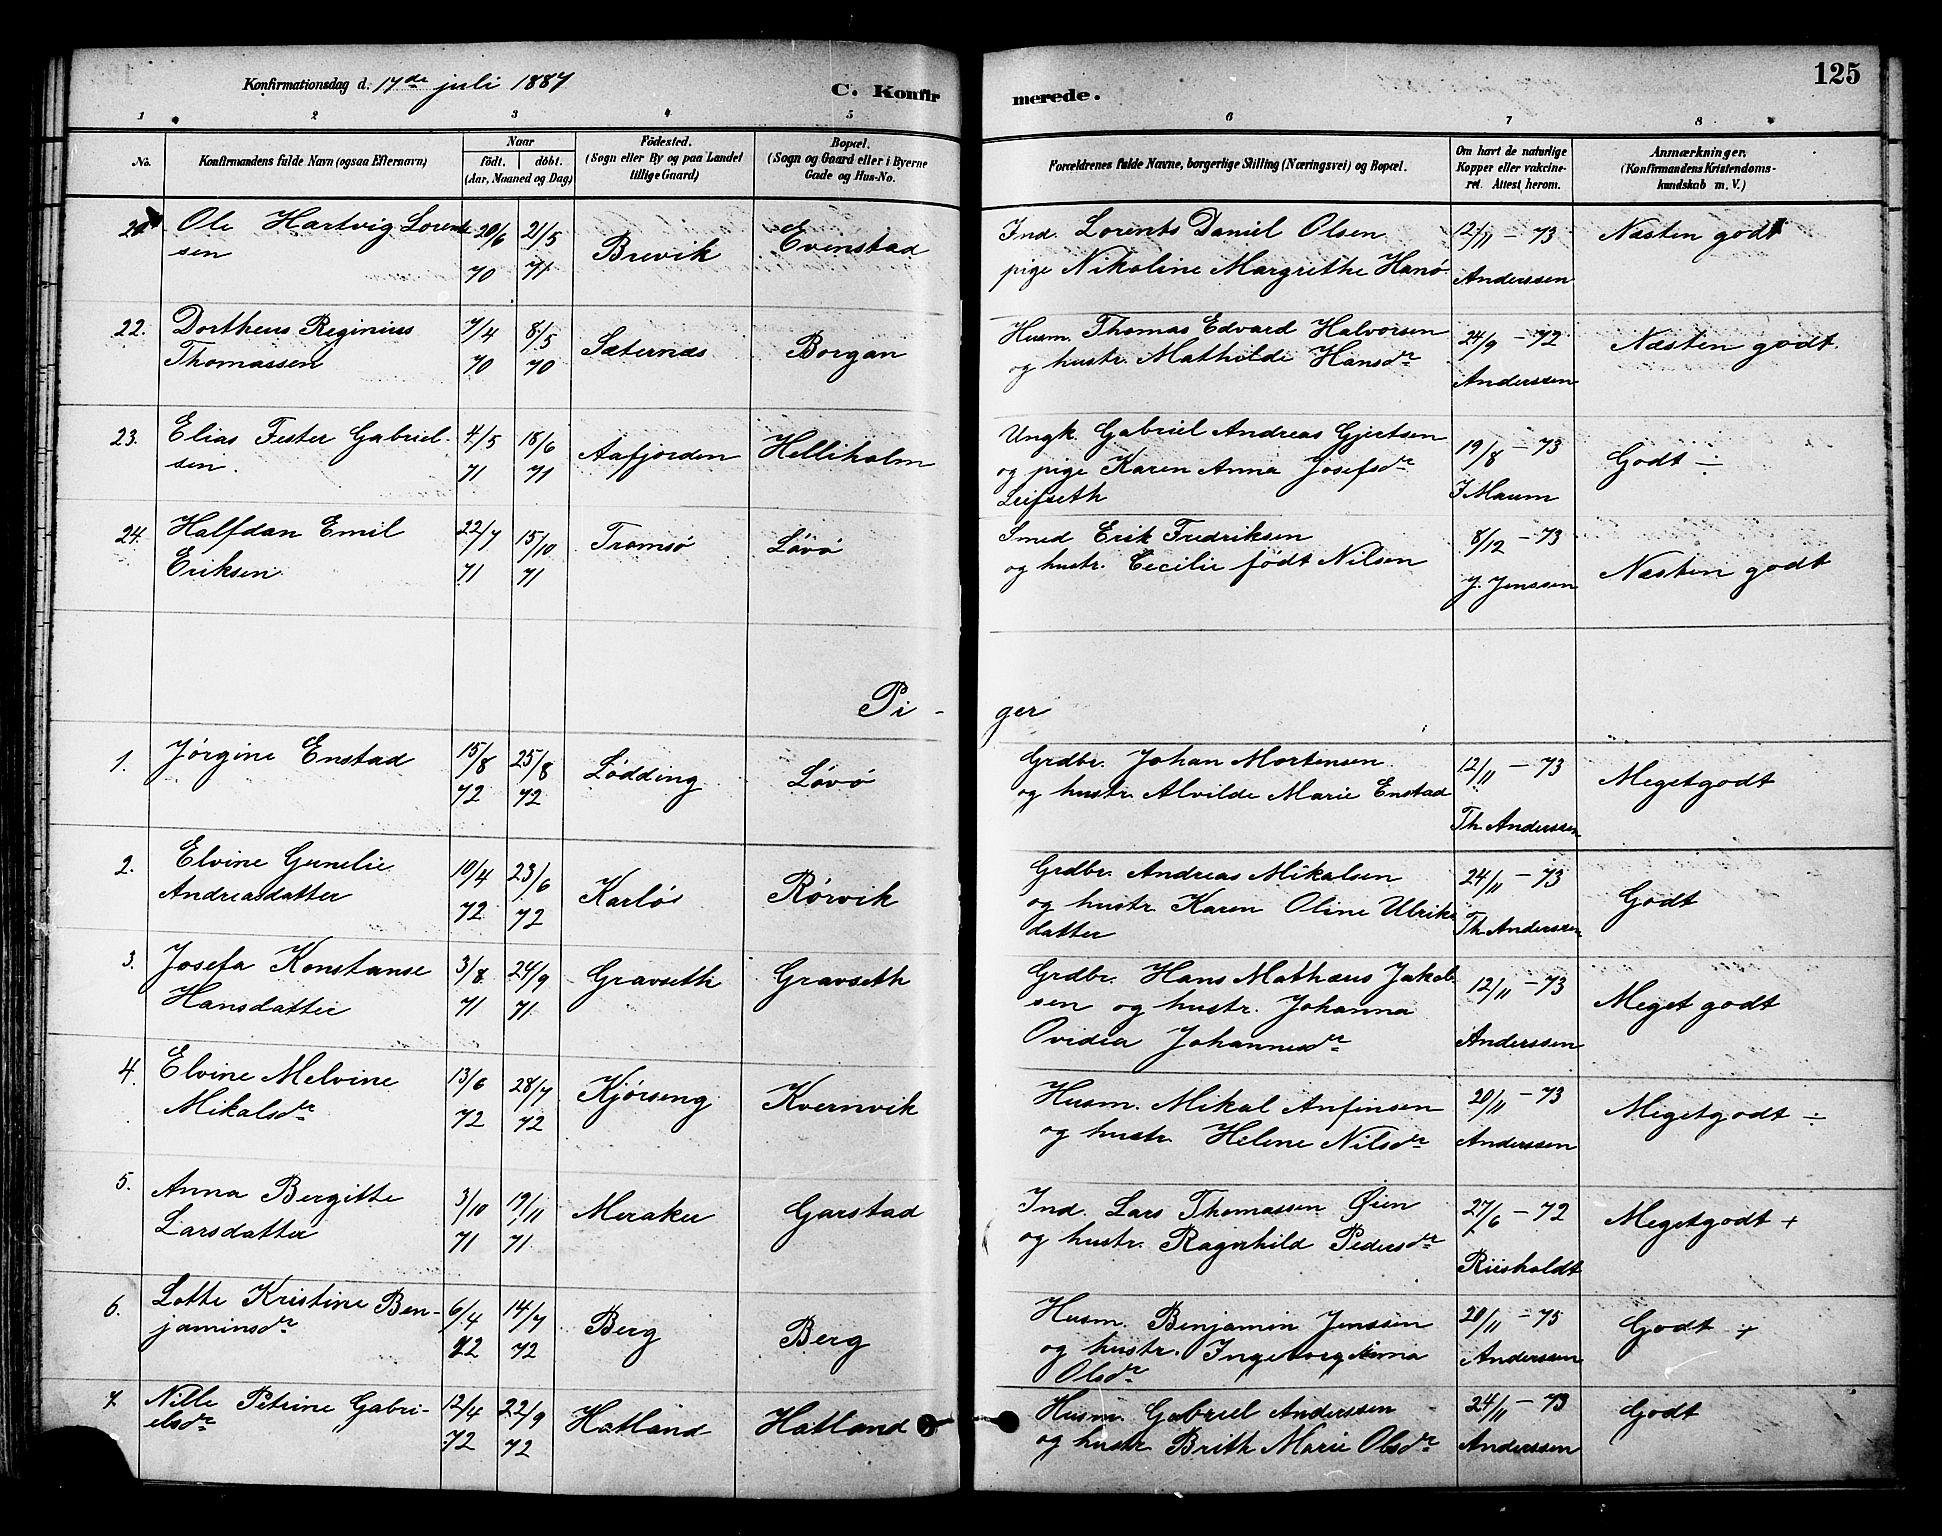 Konfirmationsdag d. 17de juli 1887
C. Konfirmerede.
125
1 2 3 4 5 6 7 8
No.
Konfirmandens fulde Navn (ogsaa Efternavn)
Naar
födt. döbt.
(Aar, Maaned og Dag)
Födested.
(Sogn eller By og paa Landet
tillige Gaard)
Bopæl.
(Sogn og Gaard eller i Byerne
Gade og Hus-No.
Forældrenes fulde Navne, borgerlige Stilling (Næringsvei) og Bopæl.
Om havt de naturlige
Kopper eller vakcine-
ret. Attest herom.
Anmærkninger.
(Konfirmandens Kristendoms-
kundskab m. V.)
Ole Hartvig Lorent
sen
20/6 70
21/5 71
Brevik
Evenstad
Ind. Lorents Daniel Olsen
pige Nikoline Margrethe Hanö
12/11 – 73
Anderssen
Næsten godt
22.
Dortheus Reginius
Thomassen
7/4 70
8/5 70
Sæternæs
Borgan
Husm. Thomas Edvard Halvorsen
og hustr. Mathilde Hansdr
24/9 – 72
Anderssen
Næsten godt.
23.
Elias Fester Gabriel-
sen.
4/5 71
18/6 71
Aafjorden
Helliholm
Ungk. Gabriel Andreas Gjertsen
og pige Karen Anna Josefsdr
Leifseth
19/8 – 73
J Maum
Godt ÷
24.
Halfdan Emil
Eriksen
22/7 71
15/10 71
Tromsø
Løvø
Smed Erik Fredriksen
og hustr. Cecilie født Nilsen
8/12 – 73
J. Jenssen
Næsten godt
Pi - ger
1.
Jørgine Enstad
15/8 72
25/8 72
Lødding
Løvø
Grdbr. Johan Mortensen
og hustr. Alvilde Marie Enstad
12/11 – 73
Th. Anderssen
Meget godt
2.
Elvine Gunelie
Andreasdatter
10/4 72
23/6 72
Karløs
Rørvik
Grdbr. Andreas Mikalsen
og hustr. Karen Oline Ulriks
datter
24/11 – 73
Th. Anderssen
Godt
3.
Josefa Konstanse
Hansdatter
3/8 71
24/9 71
Gravseth
Gravseth
Grdbr. Hans Mathæus Jakob
sen og hustr. Johanna
Ovidia Johannesdr
12/11 – 73
Anderssen
Meget godt
4.
Elvine Melvine
Mikalsdr
13/6 72
28/7 72
Kjørseng
Kvernvik
Husm. Mikal Anfinsen
og hustr. Helene Nilsdr
20/11 – 73
Anderssen
Meget godt ÷
5.
Anna Bergitte
Larsdatter
3/10 71
19/11 71
Meraker
Garstad
Ind. Lars Thomassen Øien
og hustr. Ragnhild Pedersdr
27/6 – 72
Riisholdt
Meget godt +
6.
Lotte Kristine Ben-
jaminsdr
6/4 72
14/7 72
Berg
Berg
Husm. Benjamin Jenssen
og hustr. Ingeborg Anna
Olsdr
20/11 – 75
Anderssen
Godt +
7
Nille Petrine Gabri-
elsdr
12/4 72
22/9 72
Hatland
Hatland
Husm. Gabriel Anderssen
og hustr Brith Marie Olsdr
24/11 – 73
Anderssen
Godt